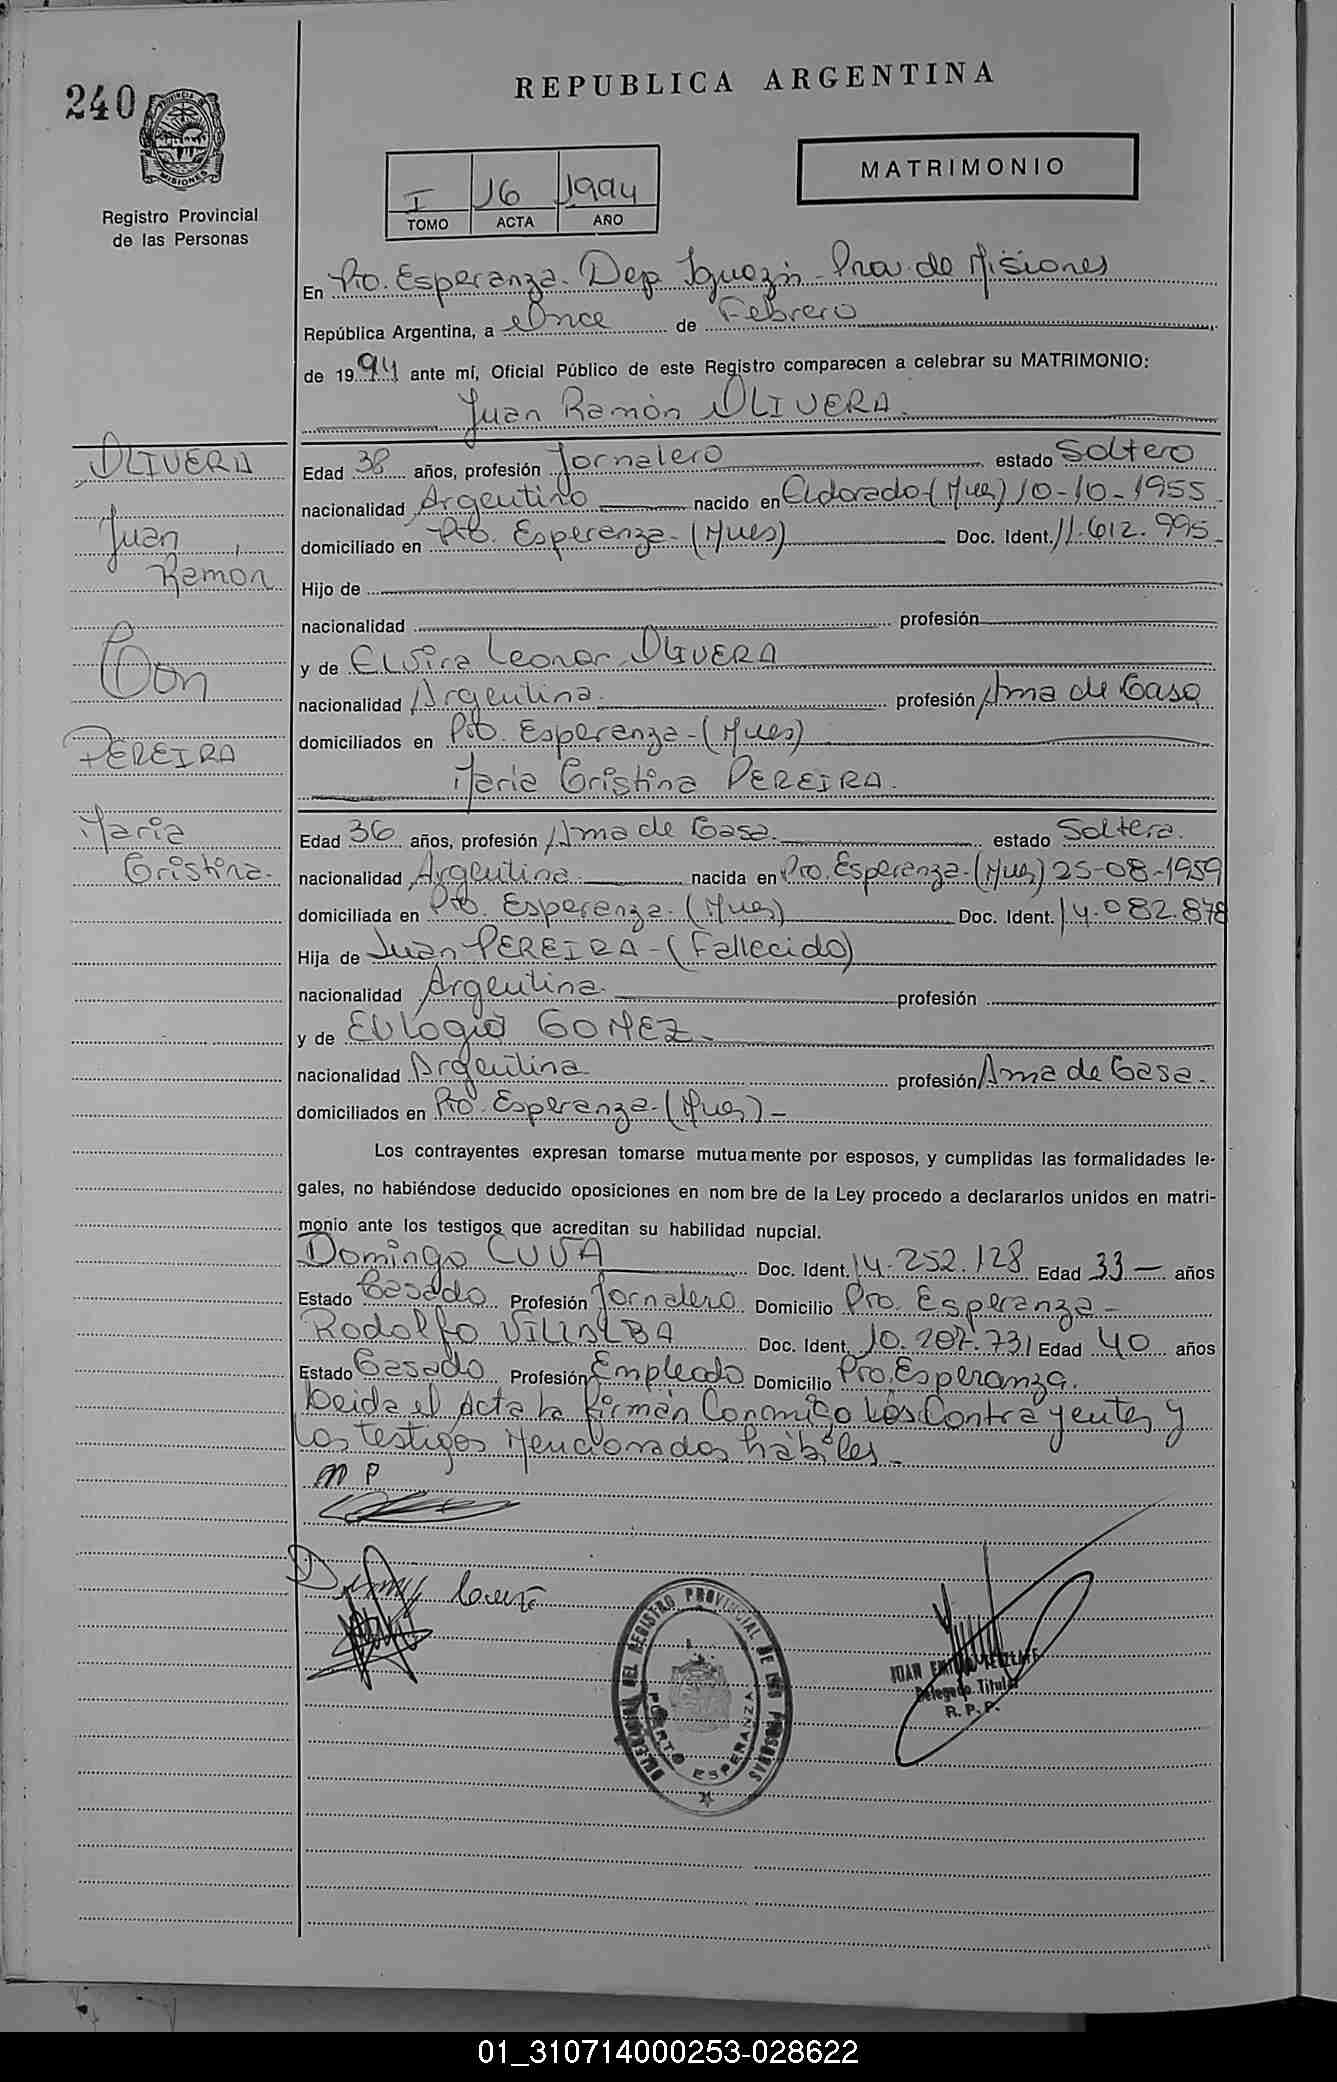 240
PROVINCIA DE
MISIONES
Registro Provincial
de las Personas
REPUBLICA ARGENTINA
MATRIMONIO
I 16 1994
TOMO ACTA AÑO
En Pto. Esperanza. Dep. Iguazú - Prov. de Misiones
República Argentina, a Once de Febrero
de 1994 ante mí, Oficial Público de este Registro comparecen a celebrar su MATRIMONIO:
Juan Ramón OLIVERA.
OLIVERA
Juan
Ramon
Con
PEREIRA
Maria
Cristina.
Edad 38 años, profesión Jornalero estado Soltero
nacionalidad Argentino nacido en Eldorado-(Mnes) 10-10-1955
domiciliado en Pto. Esperanza-(Mnes) Doc. Ident. 11.612.995
Hijo de
nacionalidad profesión
y de Elvira Leonor OLIVERA
nacionalidad Argentina. profesión Ama de Casa
domiciliados en Pto. Esperanza-(Mnes)
Maria Cristina PEREIRA.
Edad 36 años, profesión Ama de Casa. estado Soltera.
nacionalidad Argentina nacida en Pto. Esperanza-(Mnes) 25-08-1959
domiciliada en Pto. Esperanza-(Mnes) Doc. Ident. 14.082.878
Hija de Juan PEREIRA-(Fallecido)
nacionalidad Argentina. profesión
y de Eulogia GOMEZ-
nacionalidad Argentina profesión Ama de Casa-
domiciliados en Pto. Esperanza-(Mnes)-
Los contrayentes expresan tomarse mutuamente por esposos, y cumplidas las formalidades le-
gales, no habiéndose deducido oposiciones en nom bre de la Ley procedo a declararlos unidos en matri-
monio ante los testigos que acreditan su habilidad nupcial.
Domingo Doc. Ident. 14.252.128 Edad 33 años
Estado Casado Profesión Jornalero Domicilio Pto. Esperanza-
Rodolfo VILLALBA Doc. Ident. 10.207.731 Edad 40 años
Estado Casado Profesión Empleado Domicilio Pto. Esperanza.
Leida el Acta la firmán Conmigo los Contrayentes y
los testigos Mencionados hábiles-
M P
DELEGACION DEL REGISTRO PROVINCIAL DE LAS PERSONAS
PUERTO ESPERANZA
JUAN
Delegado Titular
R. P. P.
01_310714000253-028622